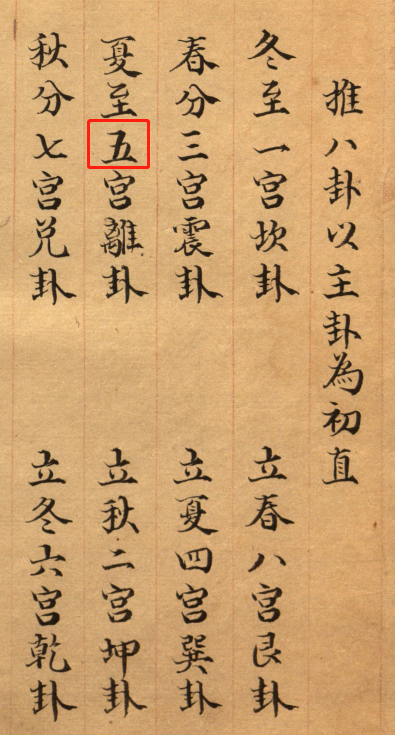 推八卦以主卦為初直
冬至一宮坎卦 立春八宮艮卦
春分三宮震卦 立夏四宮巽卦
夏至五宮離卦 立秋二宮坤卦
秋分七宮兌卦 立冬六宮乾卦